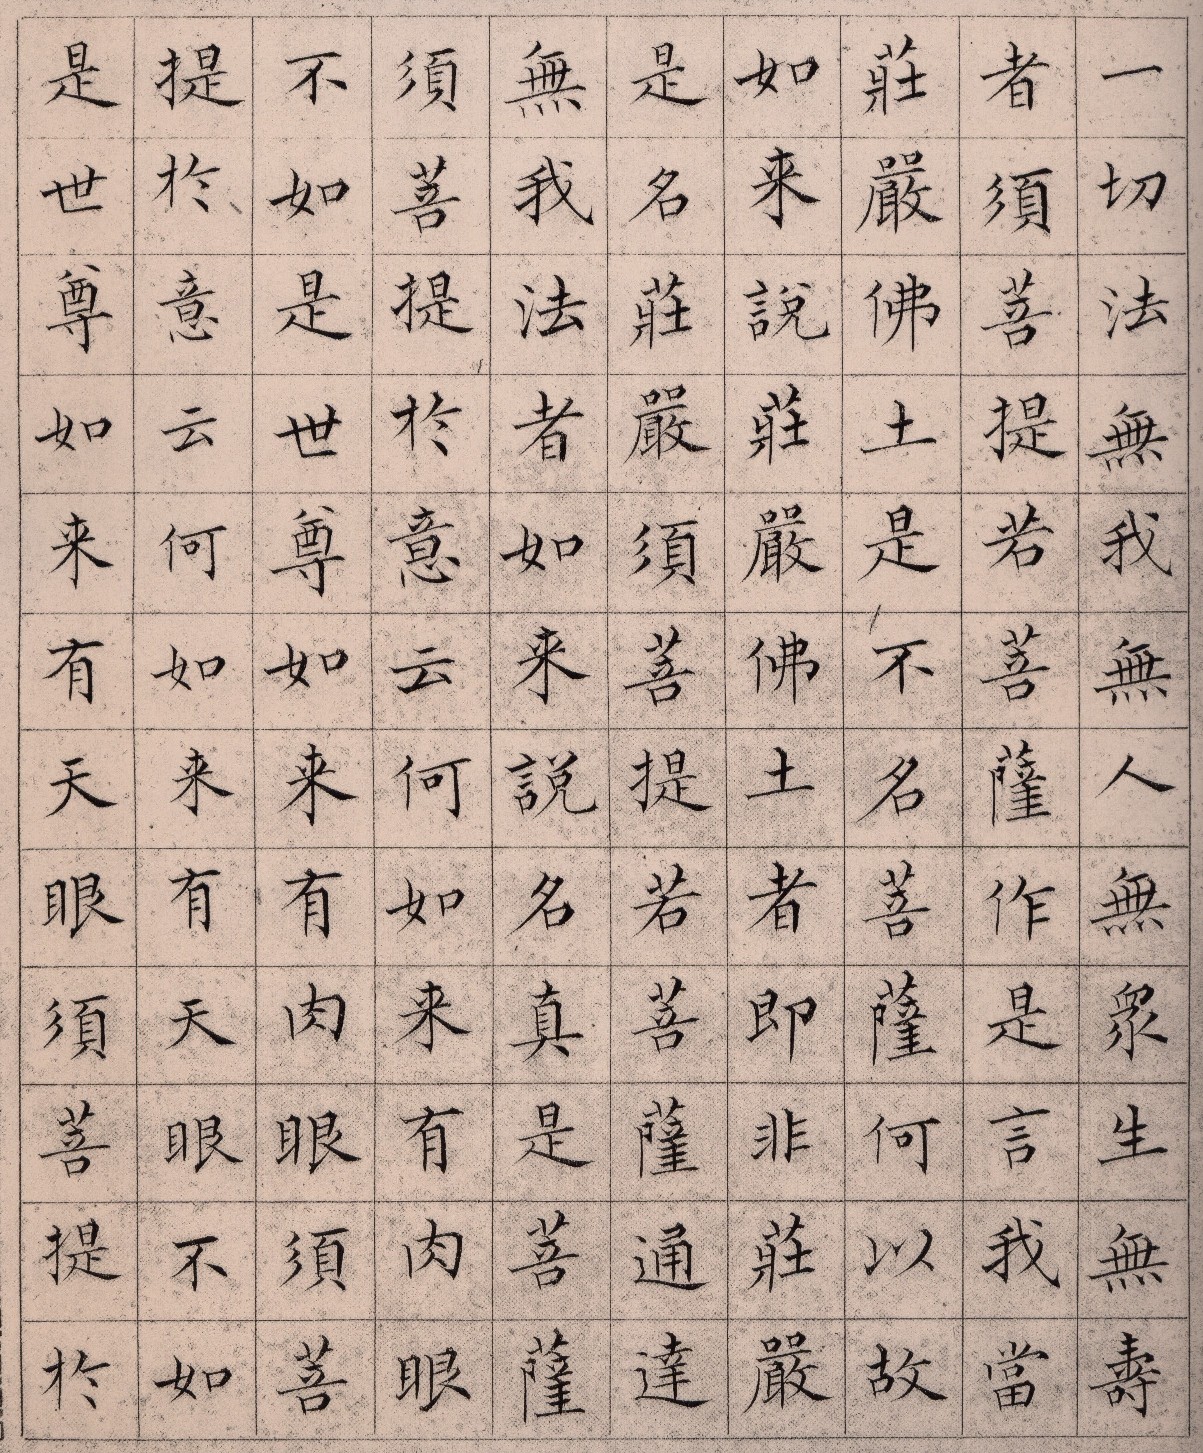 一切法無我無人無眾生無壽
者須菩提若菩薩作是言我當
莊嚴佛土是不名菩薩何以故
如来說莊嚴佛土者即非莊嚴
是名莊嚴須菩提若菩薩通達
無我法者如来說名真是菩薩
須菩提於意云何如来有肉眼
不如是世尊如来有肉眼須菩
提於意云何如来有天眼不如
是世尊如来有天眼須菩提於